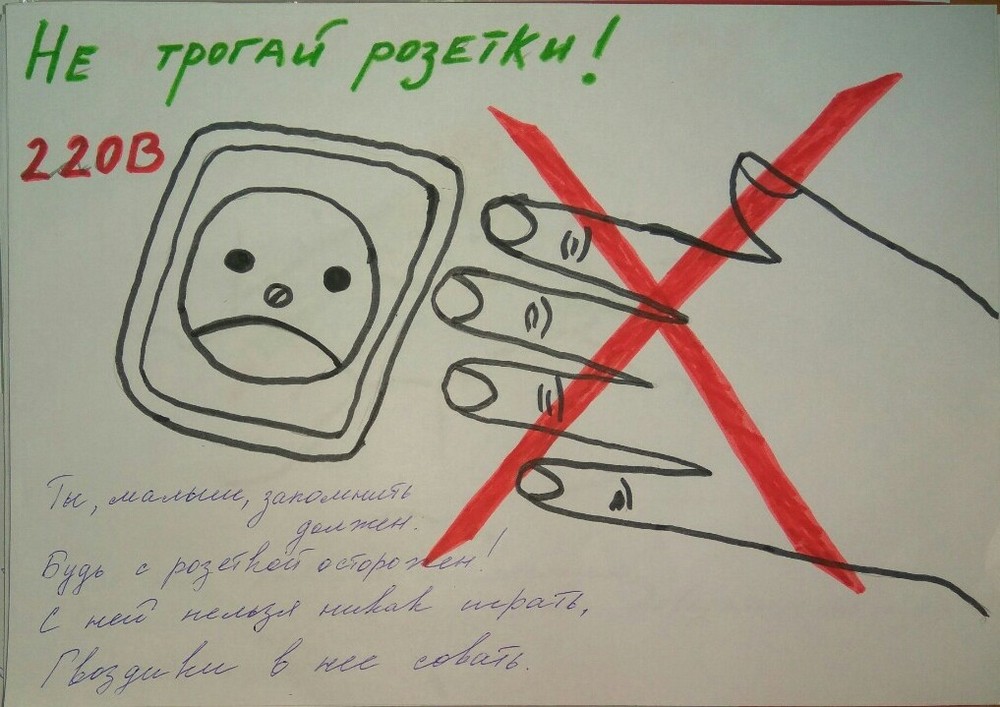 Не трогай розетки!
220В
Ты, малыш, запомнить
должен.
Будь с розеткой осторожен!
С ней нельзя никак играть,
Гвоздики в нее совать.